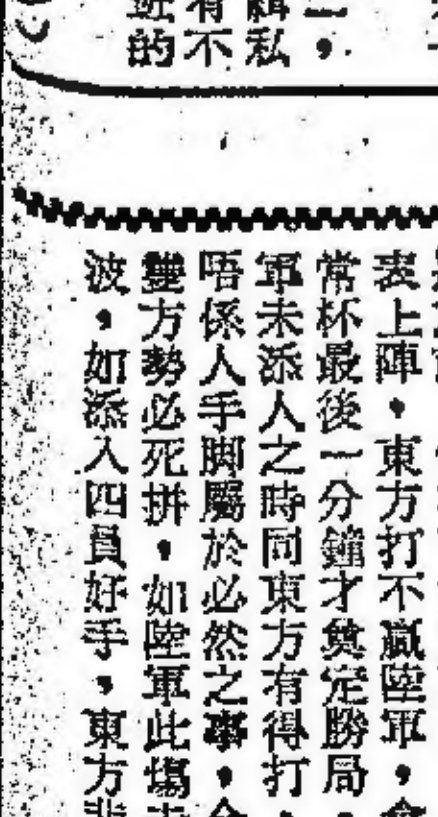 緝私
不
的
表上陣，東方打不贏陸軍，會
常杯最後一分鐘才奠定勝局，
軍未添人之時同東方有得打，
唔係人手脚屬於必然之事，
雙方勢必死拼，如陸軍此塲
波，如添入四員好手，東方